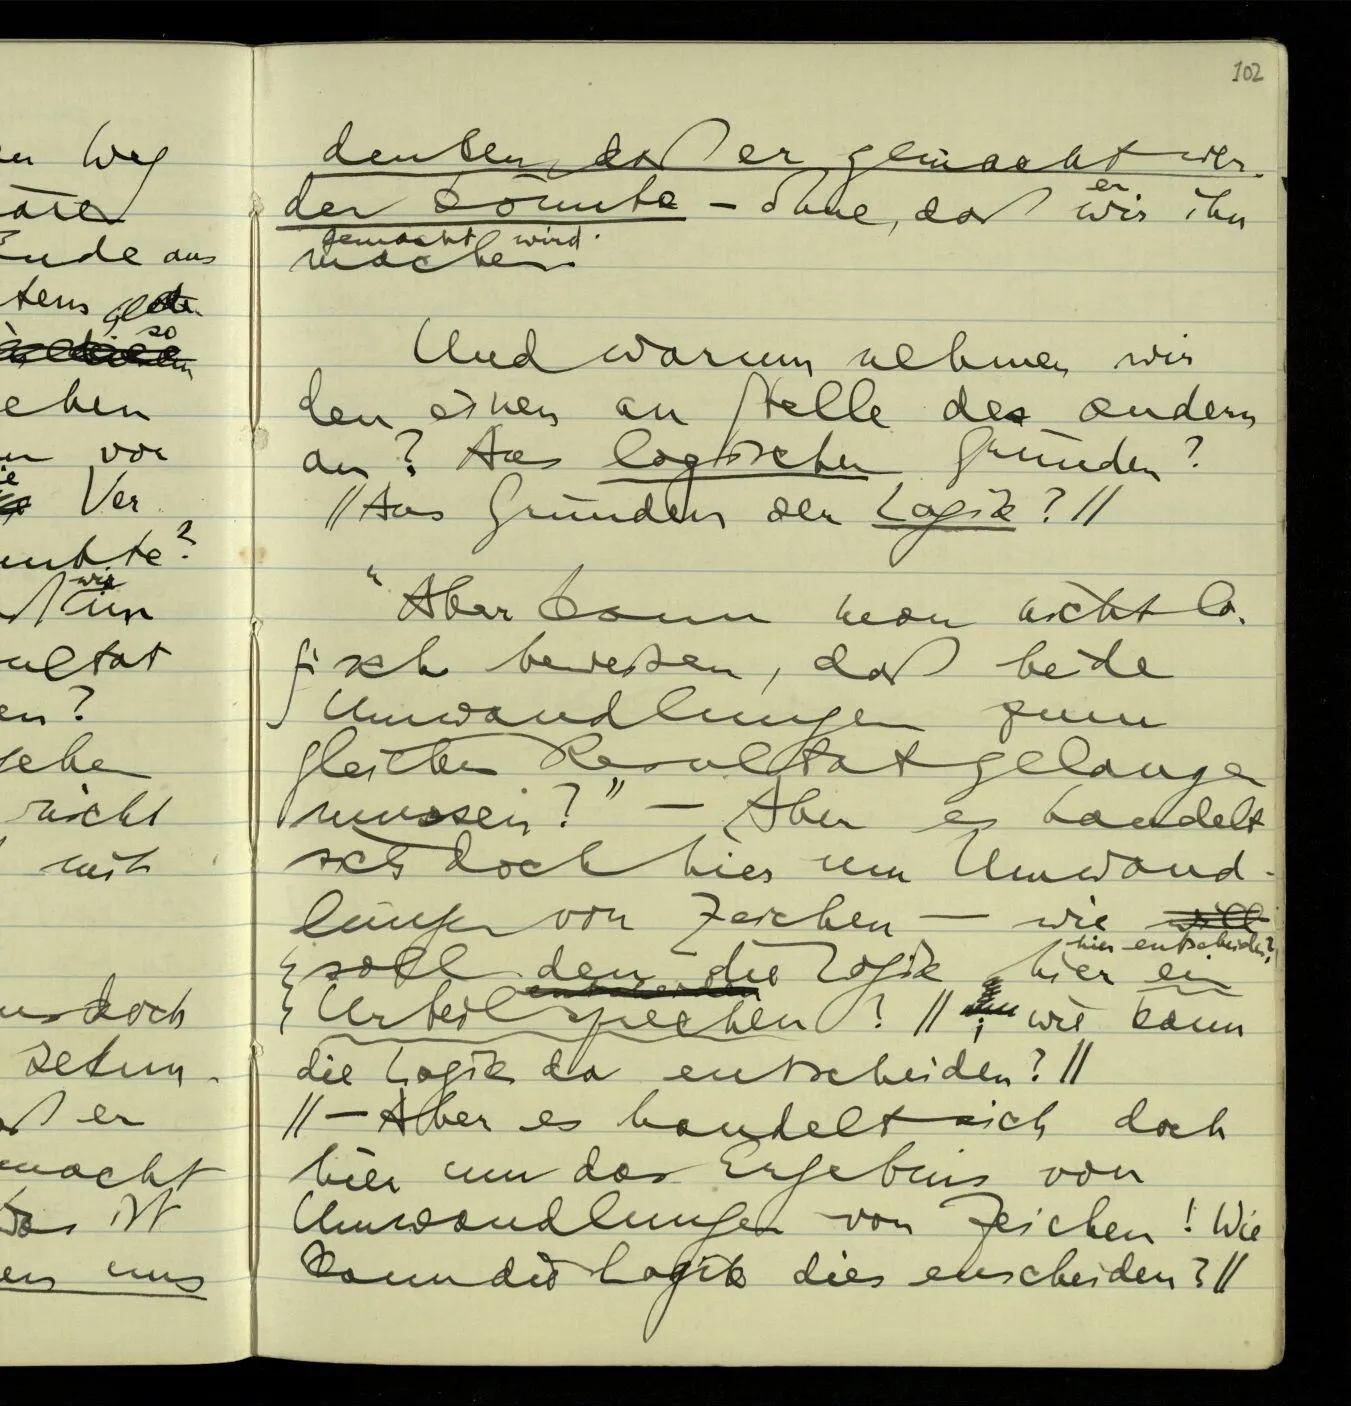 102
en Weg
Ende aus
tens
so
ehen
n vor
Ver
nnte?
wir
ultat
en?
sehen
nicht
mit
uns doch
setzen.
daß er
macht
Das ist
en uns
denken, daß er gemacht wer-
den könnte – ohne, daß wir ihn
er
gemacht wird.
machen.
Und warum nehmen wir
den einen an Stelle des andern
an? Aus logischen Gründen?
// Aus Gründen der Logik? //
"Aber kann man nicht lo-
gisch beweisen, daß beide
Umwandlungen zum
gleichen Resultat gelangen
müssen?" – Aber es handelt
sich doch hier um Umwand-
lungen von Zeichen – wie will
hier entscheiden?
soll den die Logik hier ein
entscheiden
Urteil sprechen? // ; wie kann
die Logik da entscheiden? //
// – Aber es handelt sich doch
hier um das Ergebnis von
Umwandlungen von Zeichen! Wie
kann die Logik dies enscheiden? //